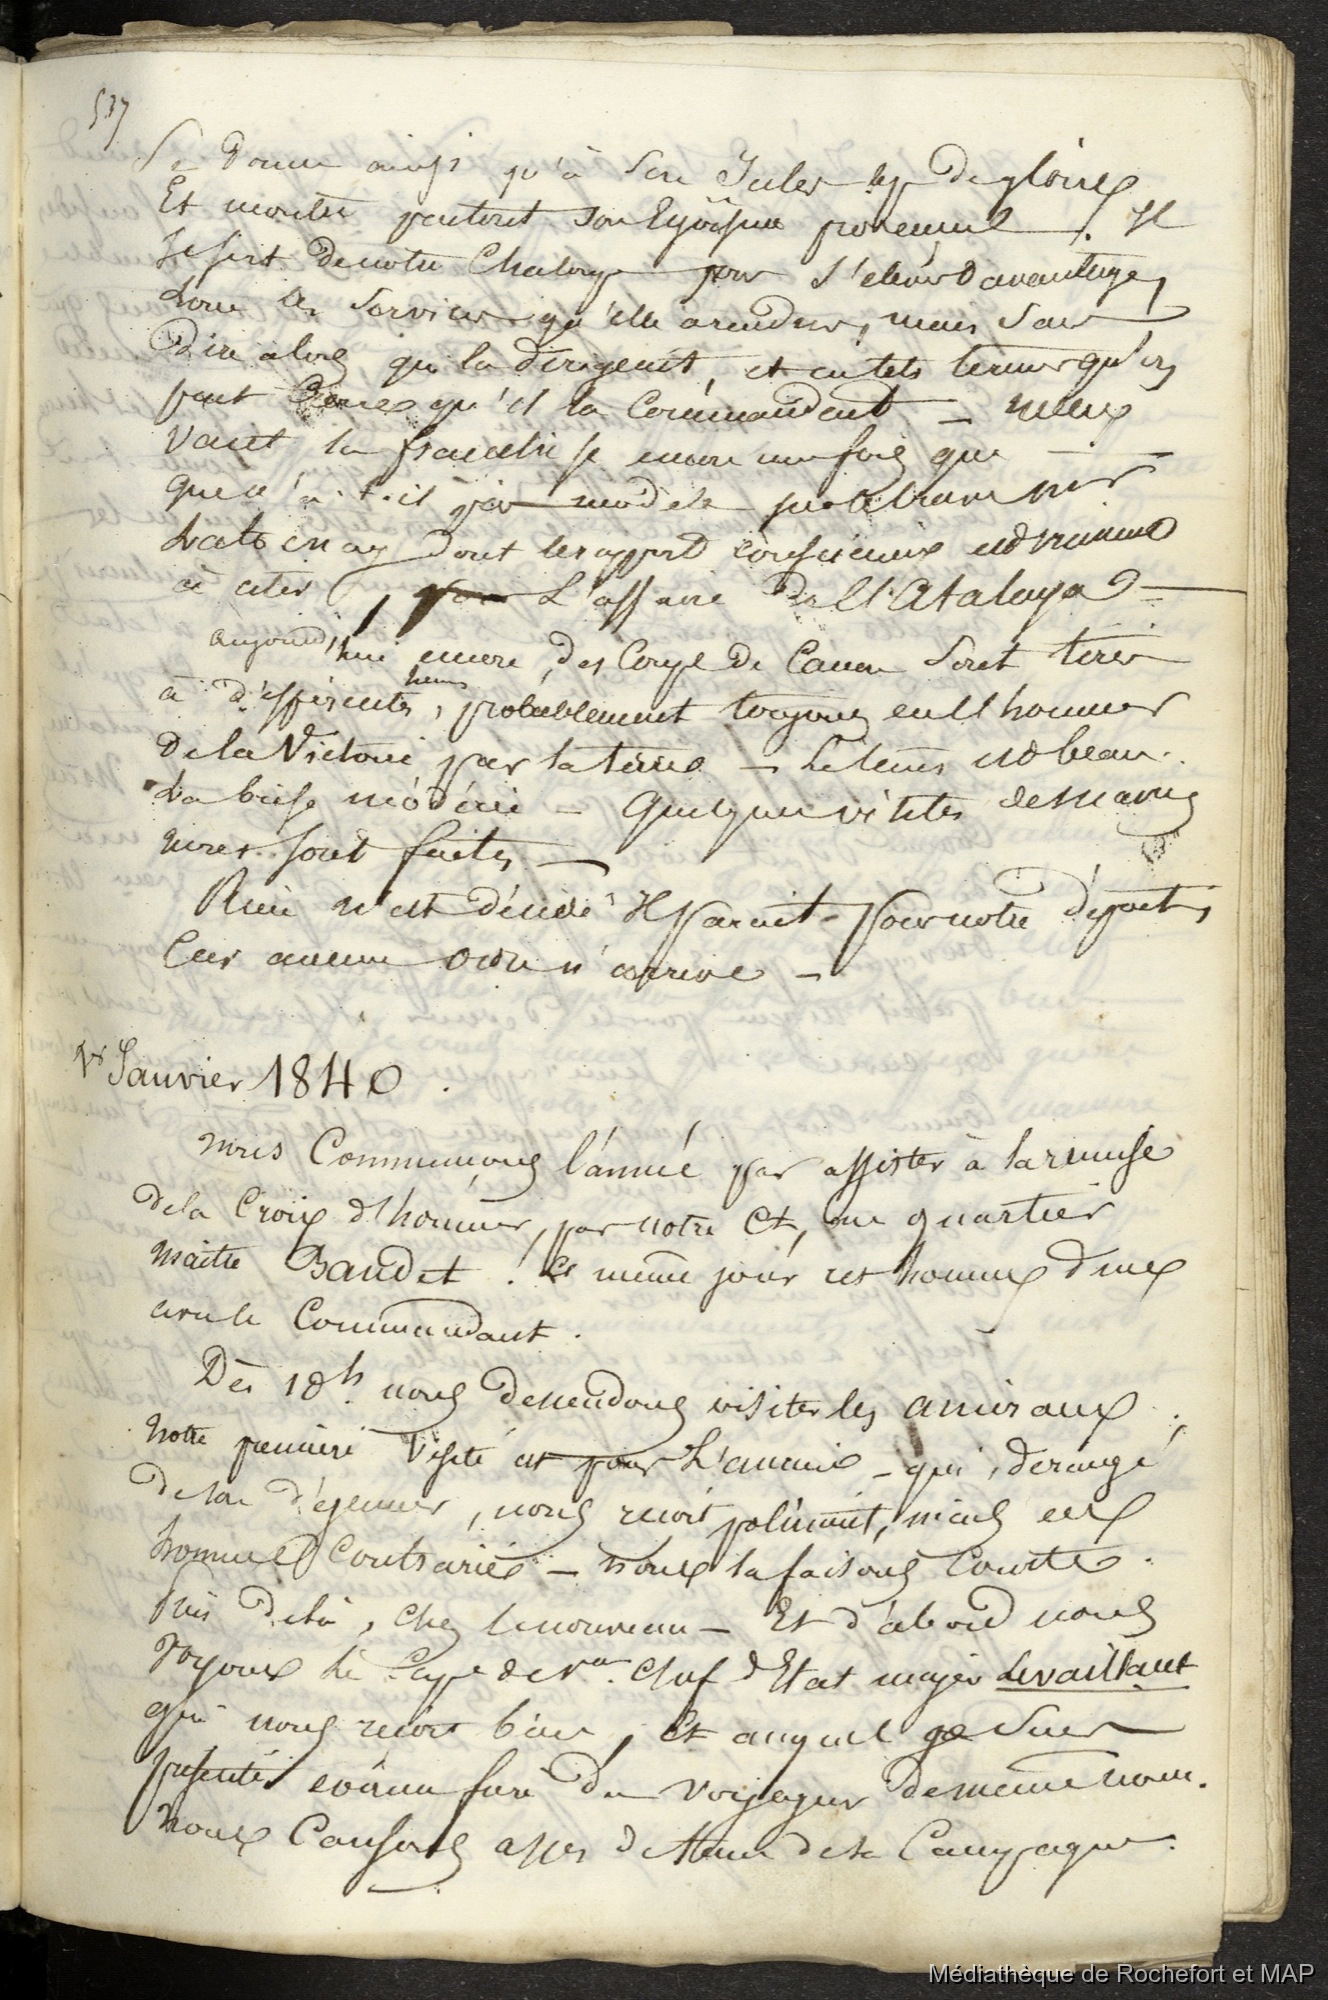 537
Se donne ainsi qu'à son Jules de gloires
Et montre partout son Egoïsme personnel. Il
se sert de notre Chaloupe pour s'élever davantage,
Loue les services qu'elle a rendus, mais sans
dire alors qui la dirigeait, et en tels termes qu'on
peut croire qu'il la Commandait — mieux
vaut la franchise encore une fois que —
que n'a-t-il pour modèle
dont le rapport consciencieux est
à citer, L'affaire de l'Atalaya —
aujourd'hui encore, des Coups de Canon sont tirés
à différentes heures, probablement toujours en l'honneur
de la Victoire par la terre — Le tems est beau.
La brise modérée — Quelques visites de
sont faites —
Rien n'est décidé il parait pour notre départ,
Car aucun ordre n'arrive —
1er Janvier 1840.
Nous Commençons l'année par assister à la remise
de la Croix d'honneur, par notre Ct, au quartier
maitre Baudet. Ce même jour cet homme dine
avec le Commandant.
Dès 10h nous descendons visiter les amiraux;
notre première visite est pour L'ancien — qui, dérangé
de son déjeuner, nous reçoit poliment, mais en
homme Contrarié — nous la faisons Courte.
Puis delà, chez le nouveau — Et d'abord nous
voyons le Cape de Vau Chef d'Etat major Levaillant
qui nous reçoit bien, Et auquel je suis
présenté du voyageur de même nom.
nous Causons assez de de la Campagne.
Médiathèque de Rochefort et MAP